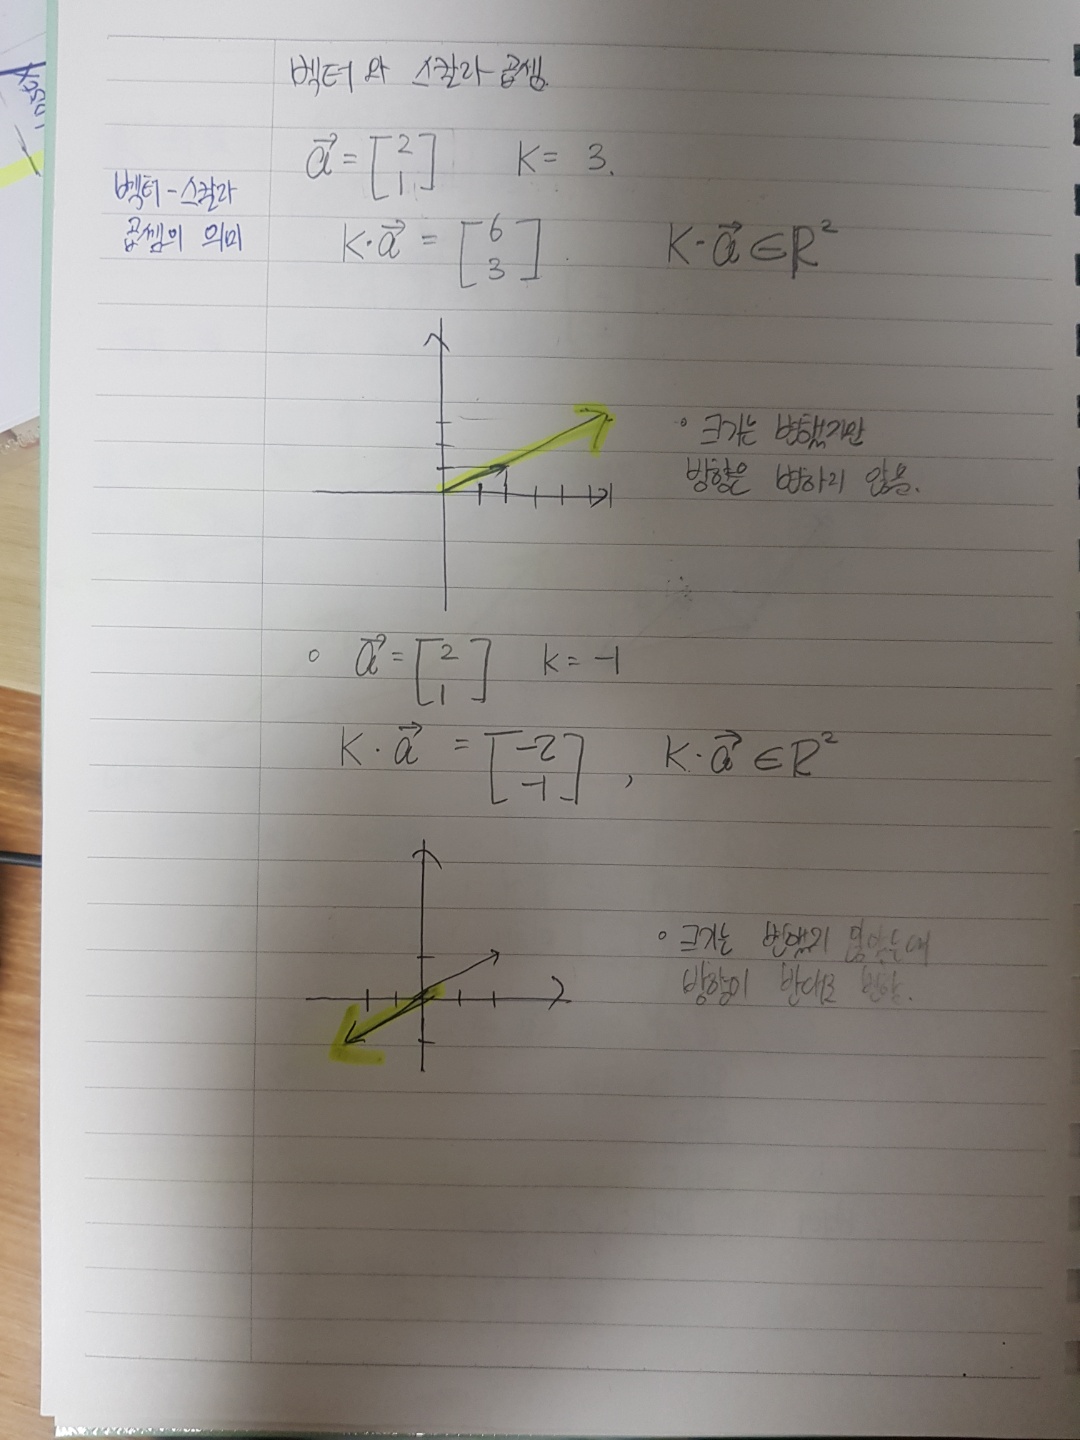 벡터와 스칼라 곱셈.
벡터-스칼라
곱셈의 의미
a⃗ = [2 1] K = 3.
K·a⃗ = [6 3]. K·a⃗ ∈ R²
◦ 크기는 변했지만
방향은 변하지 않음.
◦ a⃗ = [2 1] K = -1
K·a⃗ = [-2 -1], K·a⃗ ∈ R²
◦ 크기는 변했지 않았는데
방향이 반대로 변함.